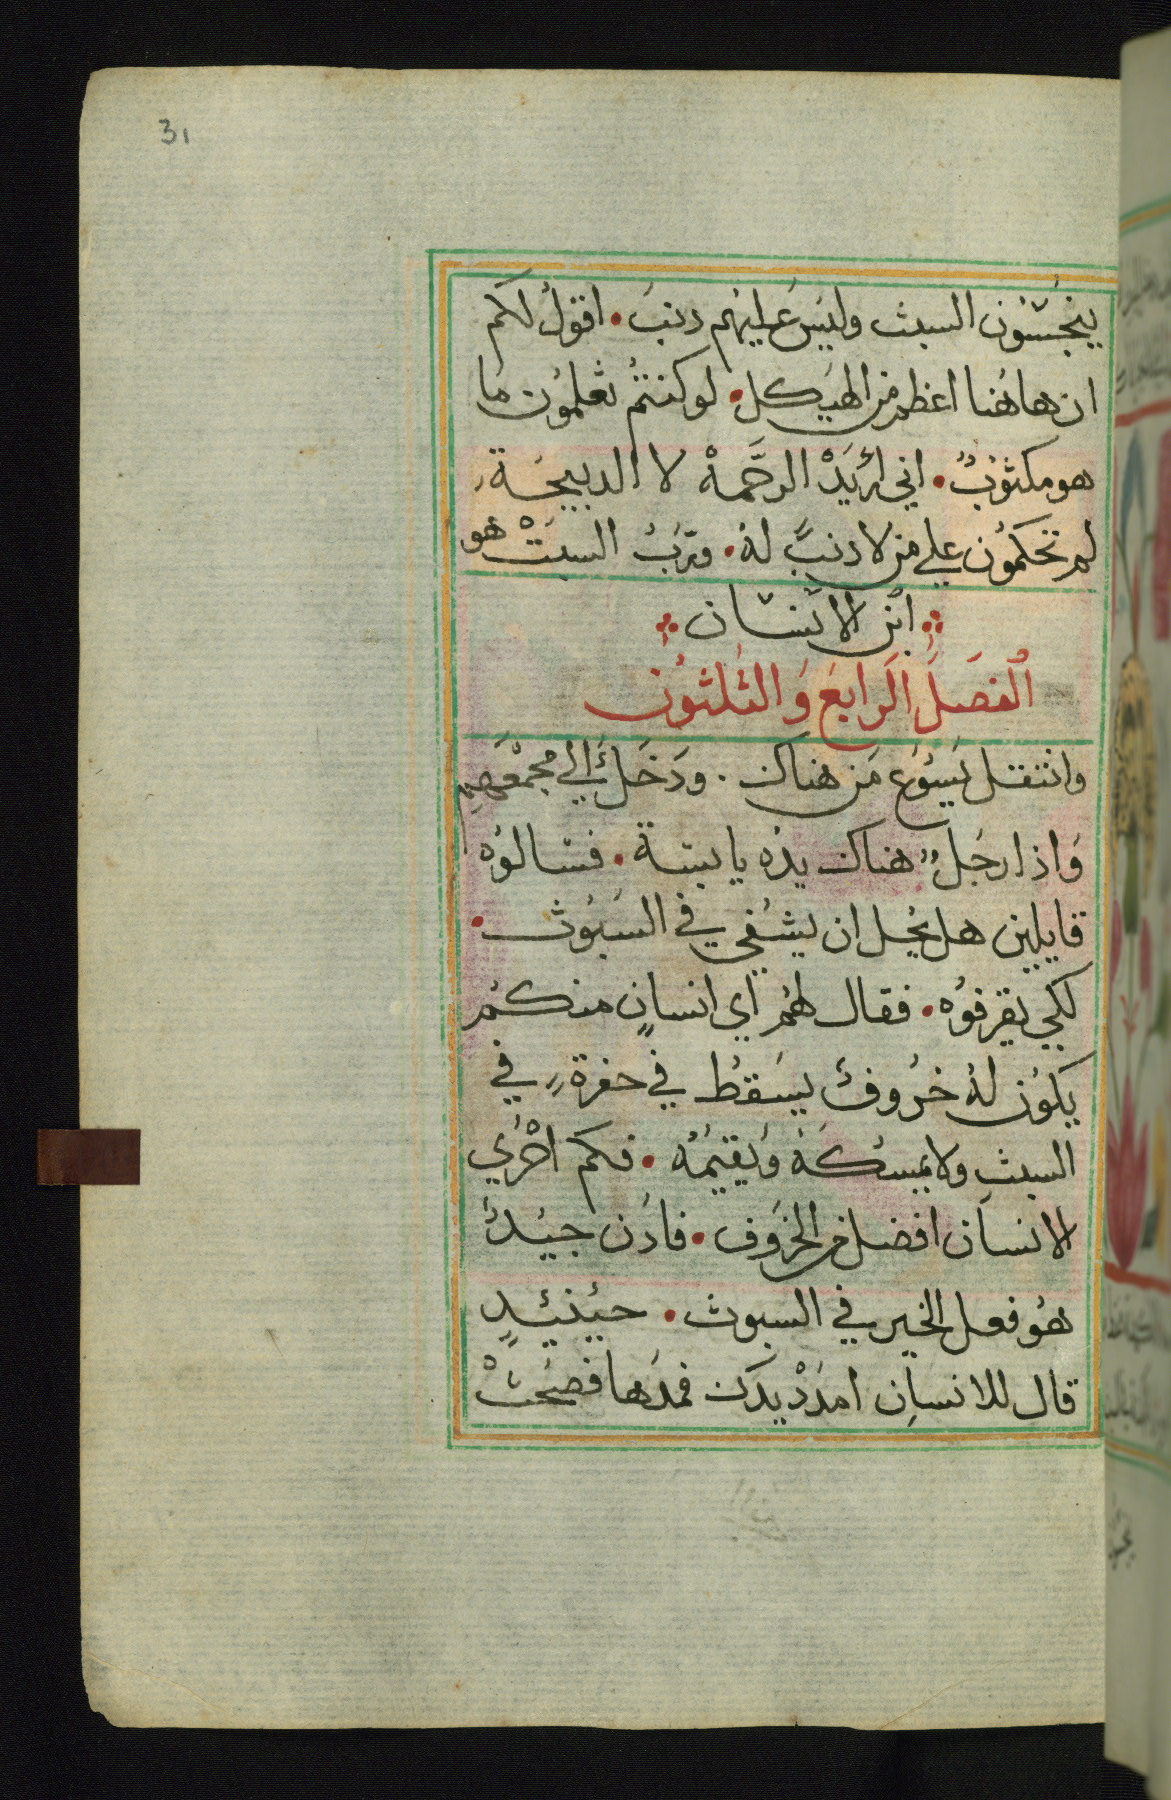 31
ينجسون السبث وليس عليهم دنب. اقول لكم
ان هاهنا اعظم من الهيكل. لو كنتم تعلمون ما
هو مكتوب. اني اريد الرحمة لا الدبيحة
لم تحكمون علي من لا دنب له. ورب السبت هو
ابن الانسان
الفصل الرابع والثلثون
وانتقل يسوع من هناك. ودخل الي مجمعهم
واذا رجل هناك يده يابسة. فسالوه
قايلين هل يحل ان يشفي في السبوث.
لكي يقرفوه. فقال لهم اي انسان منكم
يكون له خروف يسقط في حفرة في
السبث ولا يمسكه ويقيمه. فكم احري
الانسان افضل من الخروف. فادن جيد
هو فعل الخير في السبوث. حينيد
قال للانسان امدد يدك فمدها فصحت